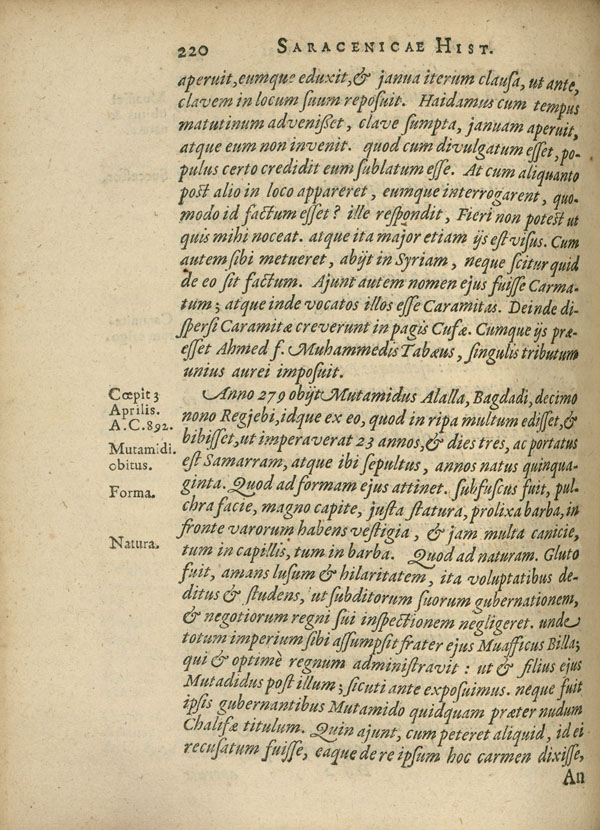 220 SARACENICAE HIST.
aperuit, eumque eduxit, & janua iterum clausa, ut ante,
clavem in locum suum reposuit. Haidamus cum tempus
matutinum advenißet, clave sumpta, januam aperuit,
atque eum non invenit. quod cum divulgatum esset, po-
pulus certo credidit eum sublatum esse. At cum aliquanto
post alio in loco appareret, eumque interrogarent, quo-
modo id factum esset? ille respondit, Fieri non potest ut
quis mihi noceat. atque ita major etiam ijs est visus. Cum
autem sibi metueret, abijt in Syriam, neque scitur quid
de eo sit factum. Ajunt autem nomen ejus fuisse Carma-
tum; atque inde vocatos illos esse Caramitas. Deinde di-
spersi Caramitæ creverunt in pagis Cufæ. Cumque ijs præ-
esset Ahmed f. Muhammedis Tabæus, singulis tributum
unius aurei imposuit.
Cœpit 3
Aprilis.
A.C.892.
Mutamidi
obitus.
Forma.
Natura.
Anno 279 obijt Mutamidus Alalla, Bagdadi, decimo
nono Regjebi, idque ex eo, quod in ripa multum edisset, &
bibisset, ut imperaverat 23 annos, & dies tres, ac portatus
est Samarram, atque ibi sepultus, annos natus quinqua-
ginta. Quod ad formam ejus attinet. subfuscus fuit, pul-
chra facie, magno capite, justa statura, prolixa barba, in
fronte varorum habens vestigia, & jam multa canicie,
tum in capillis, tum in barba. Quod ad naturam. Gluto
fuit, amans lusum & hilaritatem, ita voluptatibus de-
ditus & studens, ut subditorum suorum gubernationem,
& negotiorum regni sui inspectionem negligeret. unde
totum imperium sibi assumpsit frater ejus Muafficus Billa;
qui & optimè regnum administravit: ut & filius ejus
Mutadidus post illum; sicuti ante exposuimus. neque fuit
ipsis gubernantibus Mutamido quidquam præter nudum
Chalifæ titulum. Quin ajunt, cum peteret aliquid, id ei
recusatum fuisse, eaque de re ipsum hoc carmen dixisse,
An